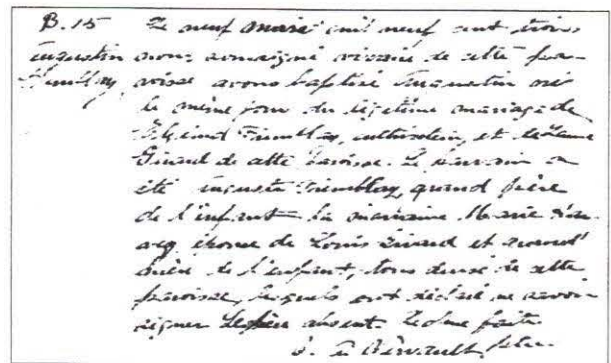 B. 15 Le neuf mars mil neuf cent trois
Augustin nous soussigné vicaire de cette pa-
Tremblay roisse avons baptisé Augustin né
le même jour du légitime mariage de
Tremblay, cultivateur, et de
Girard de cette paroisse. Le parrain a
été Auguste Tremblay, grand père
de l'enfant la marraine Marie
épouse de Louis Girard et grand'
mère de l'enfant, tous deux de cette
paroisse, lesquels ont déclaré ne savoir
signer. Le père absent. Lecture faite.
ptre.